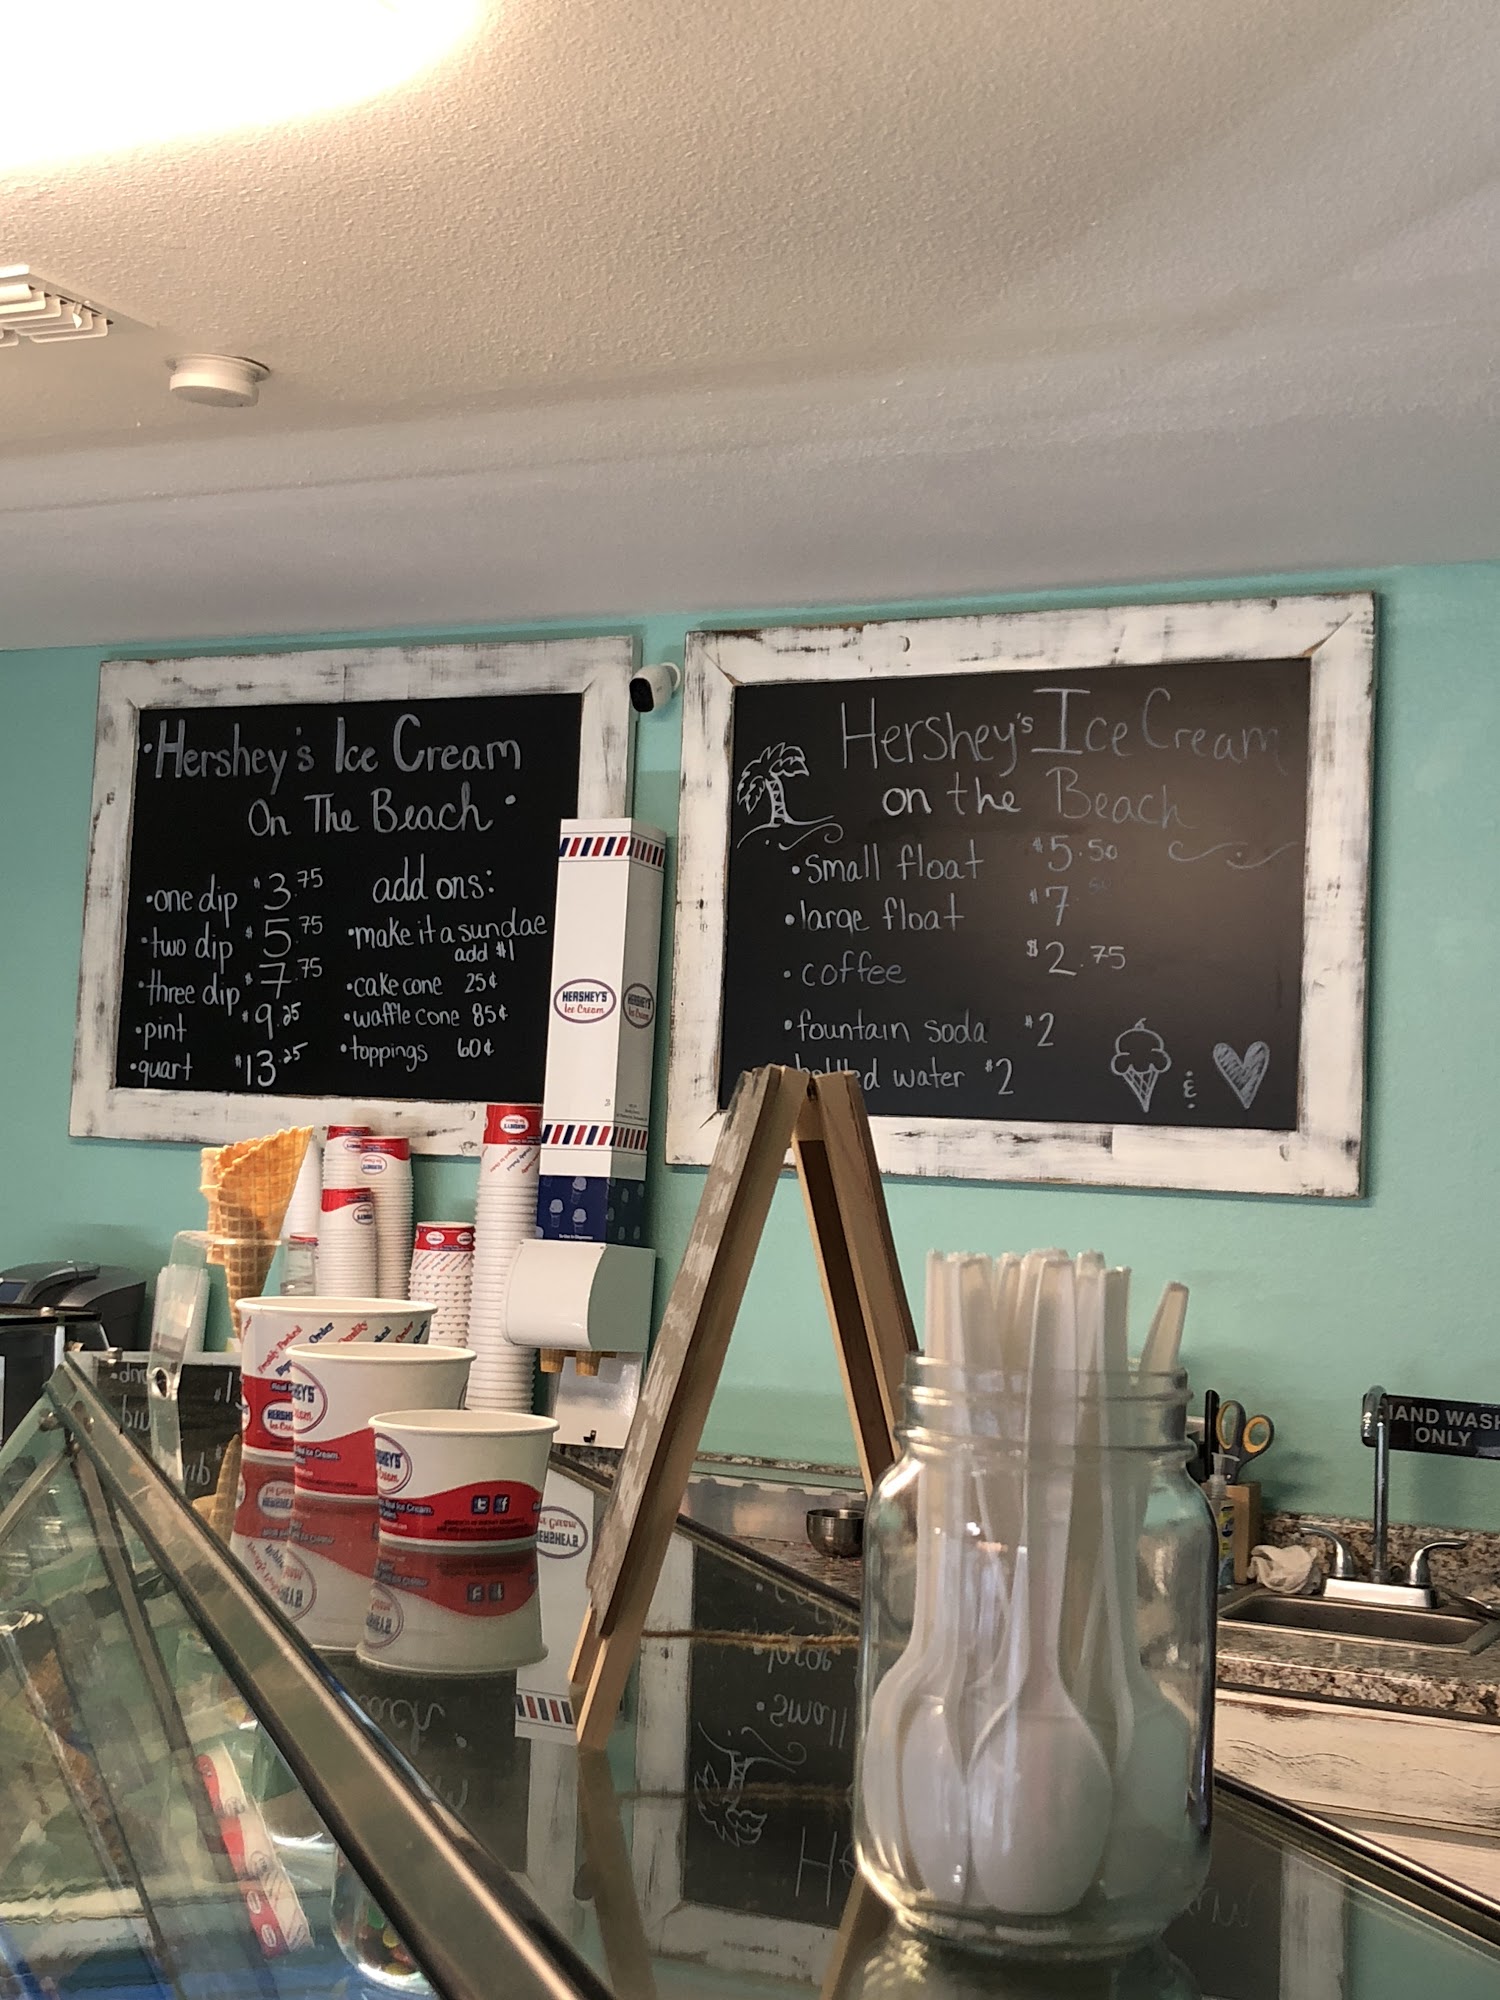 ·Hershey's Ice Cream
On The Beach·
·one dip $3.75
·two dip $5.75
·three dip $7.75
·pint $9.25
·quart $13.25
add ons:
·make it a sundae
add $1
·cake cone 25¢
·waffle cone 85¢
·toppings 60¢
Hershey's Ice Cream
on the Beach
·small float $5.50
·large float $7.50
·coffee $2.75
·fountain soda $2
water $2
&
HERSHEY'S
Ice Cream
HERSHEY'S
Ice Cream
HAND WASH
ONLY
Freshly Packed
Order
Quality
Real Ice Cream